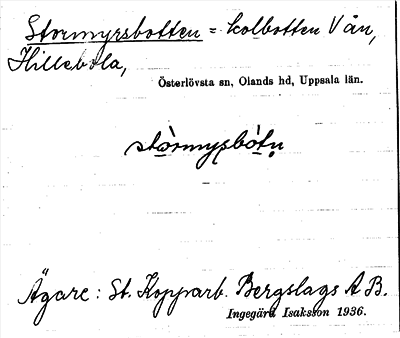 Stormyrsbotten = kolbotten V ån,
Hillebola,
Österlövsta sn, Olands hd, Uppsala län.
stòrmysbòtṇ
Ägare: St. Kopparb. Bergslags A B.
Ingegärd Isaksson 1936.